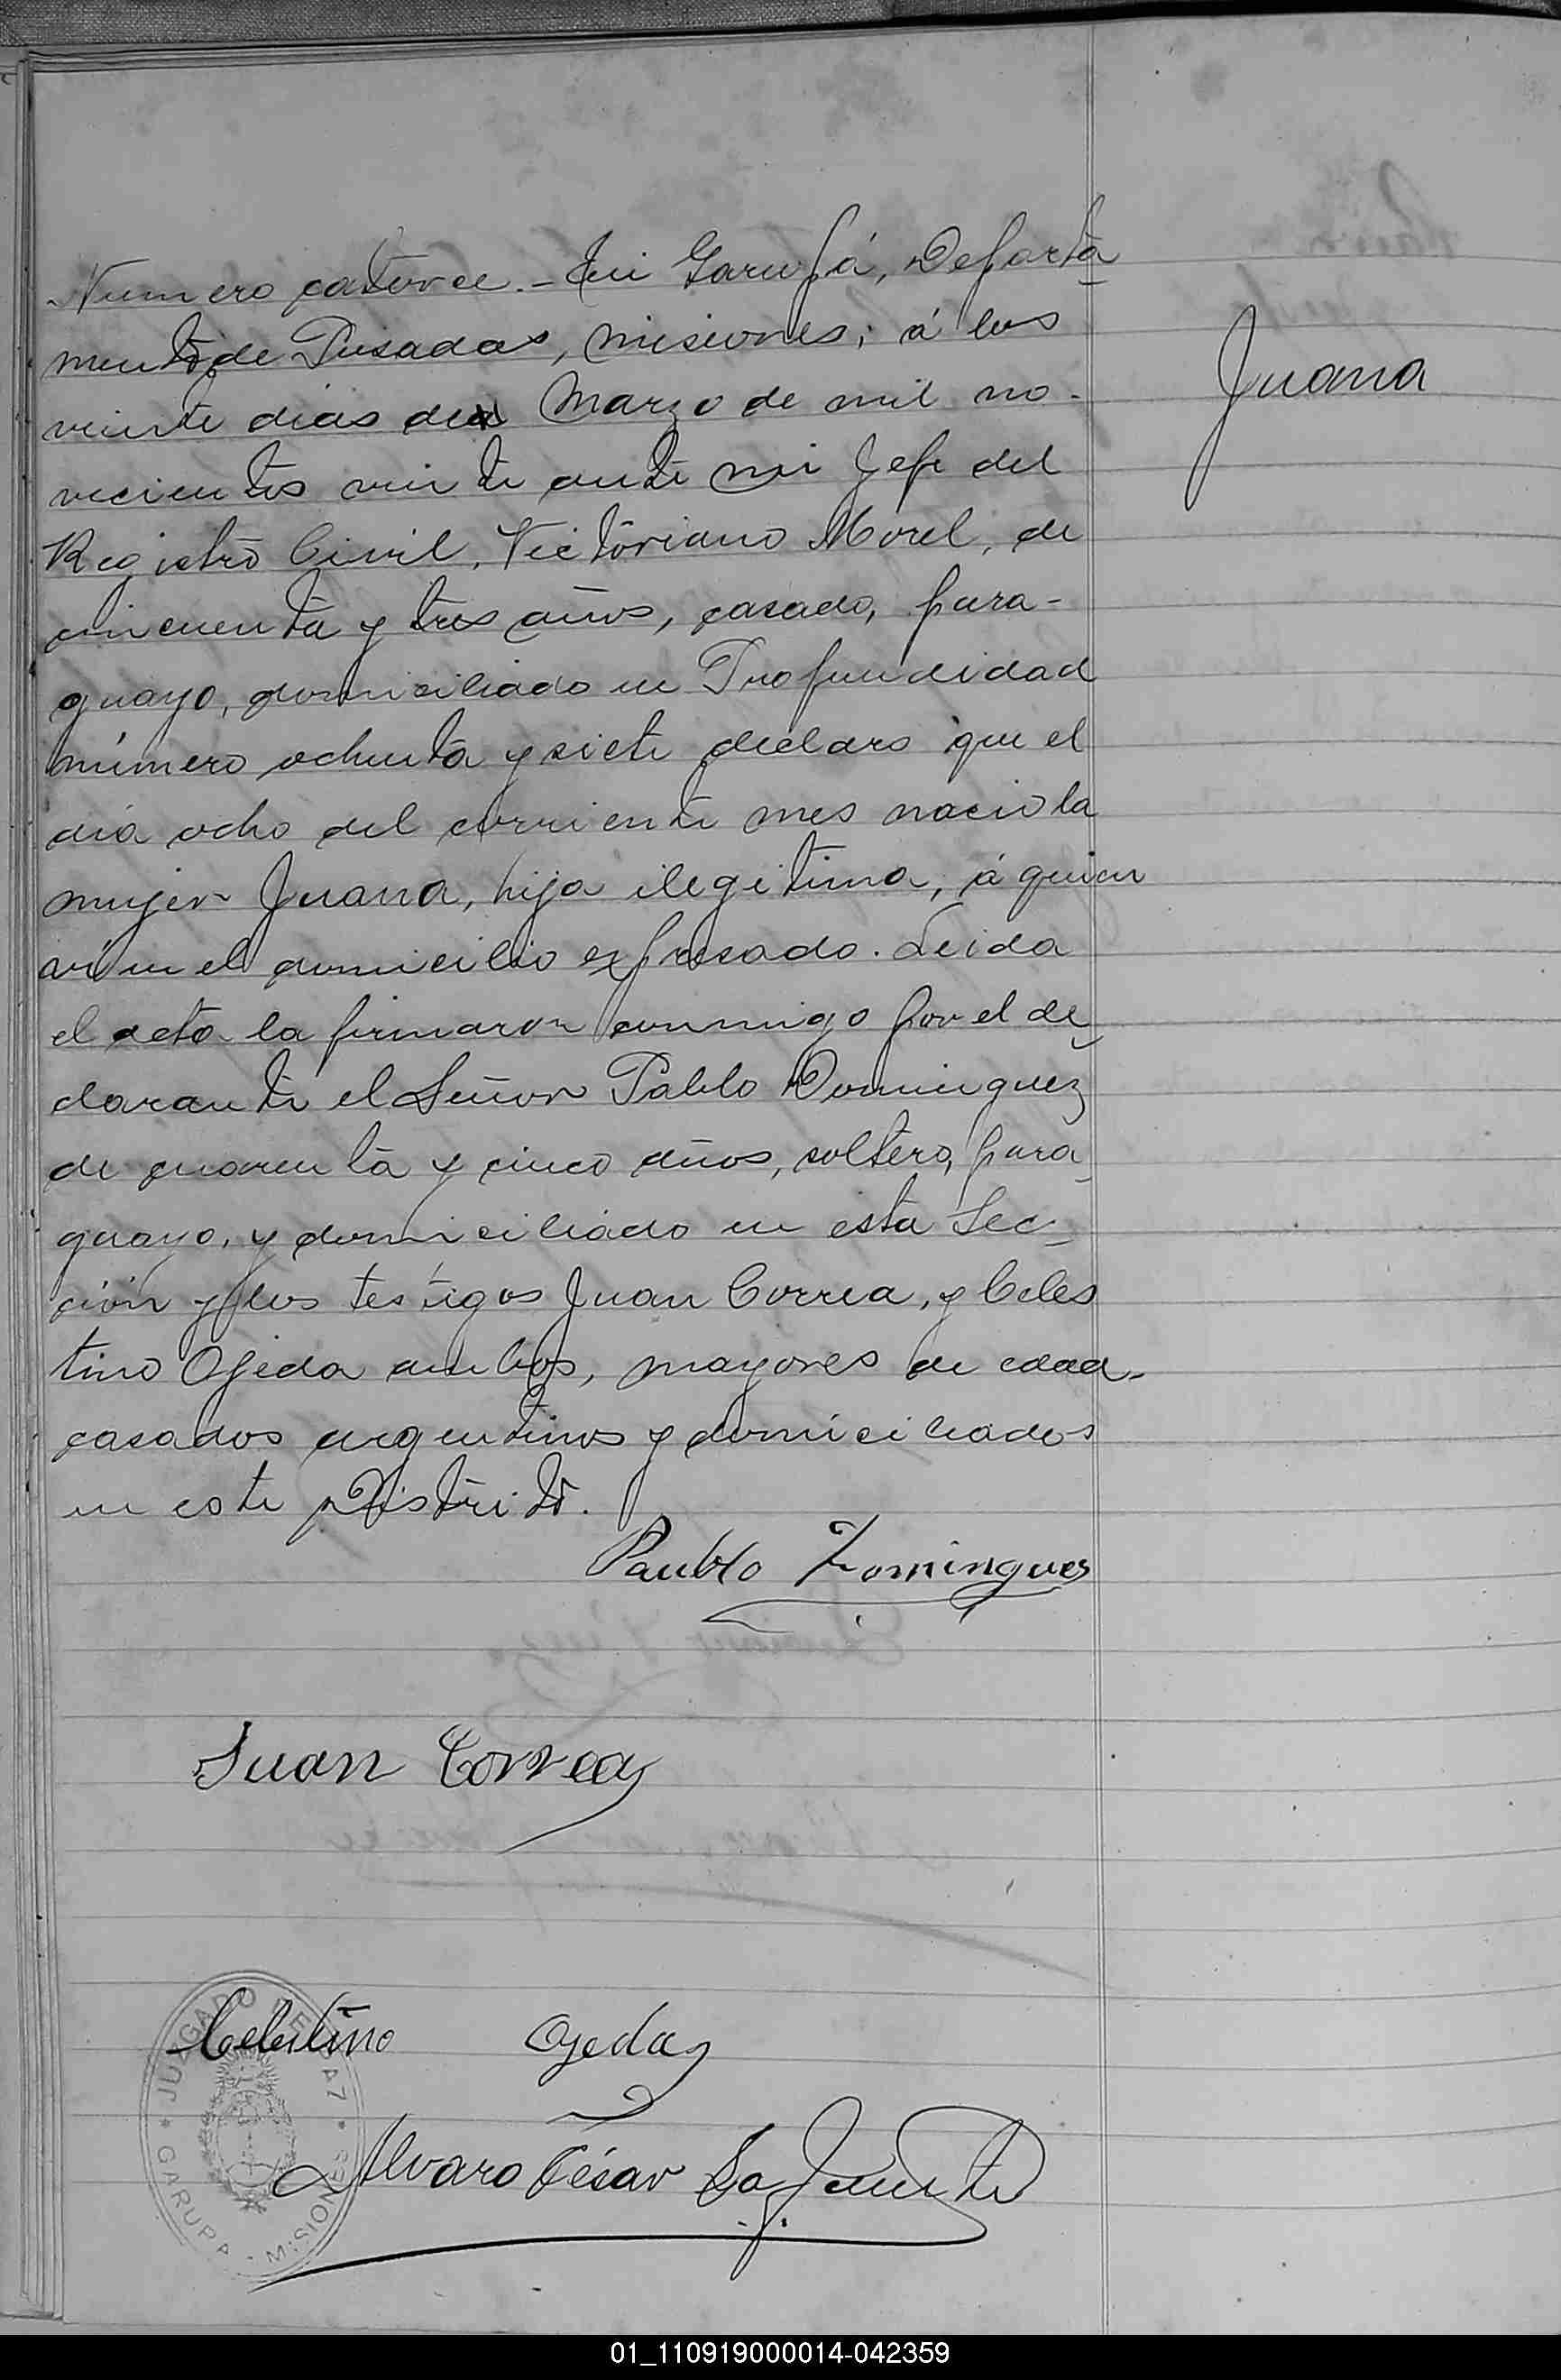 Numero catorce.- En Garupá, Departa-
mento de Posadas, Misiones; á los
veinte dias de Marzo de mil no-
vecientos veinte ante mi Jefe del
Registro Civil, Victoriano Morel, de
cincuenta y tres años, casado, para-
guayo, domiciliado en Profundidad
número ochenta y siete declaro que el
día ocho del corriente mes nació la
mujer Juana, hija ilegitima, á quien
ví en el domicilio expresado. Leida
el acta la firmaron conmigo por el de-
clarante el Señor Pablo Dominguez
de cuarenta y cinco años, soltero, para-
guayo, y domiciliado en esta Sec-
ción y los testigos Juan Correa, y Celes
tino Ojeda ambos, mayores de edad-
casados argentinos y domiciliados
en este Distrito.
Juana
Paublo Domingues
Juan Correa
Celestino Ojeda
Alvaro César Lafuente
JUZGADO DE PAZ
GARUPA - MISIONES
01_110919000014-042359